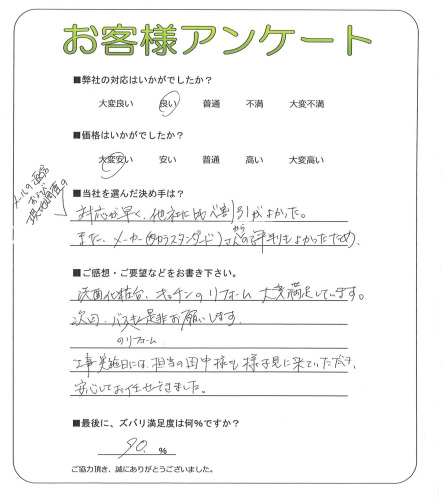 お客様アンケート
■弊社の対応はいかがでしたか？
大変良い 良い 普通 不満 大変不満
■価格はいかがでしたか？
大変安い 安い 普通 高い 大変高い
メールの返答
および
現地調査の
■当社を選んだ決め手は？
対応が早く、他社に比べ割引がよかった。
また、メーカー(タカラスタンダード)さんからの評判もよかったため。
■ご感想・ご要望などをお書き下さい。
洗面化粧台、キッチンのリフォーム 大変満足しています。
次回、バスも是非お願いします。
のリフォーム
工事実施日には、担当の田中様も様子見に来ていただき、
安心してお任せできました。
■最後に、ズバリ満足度は何％ですか？
90. ％
ご協力頂き、誠にありがとうございました。